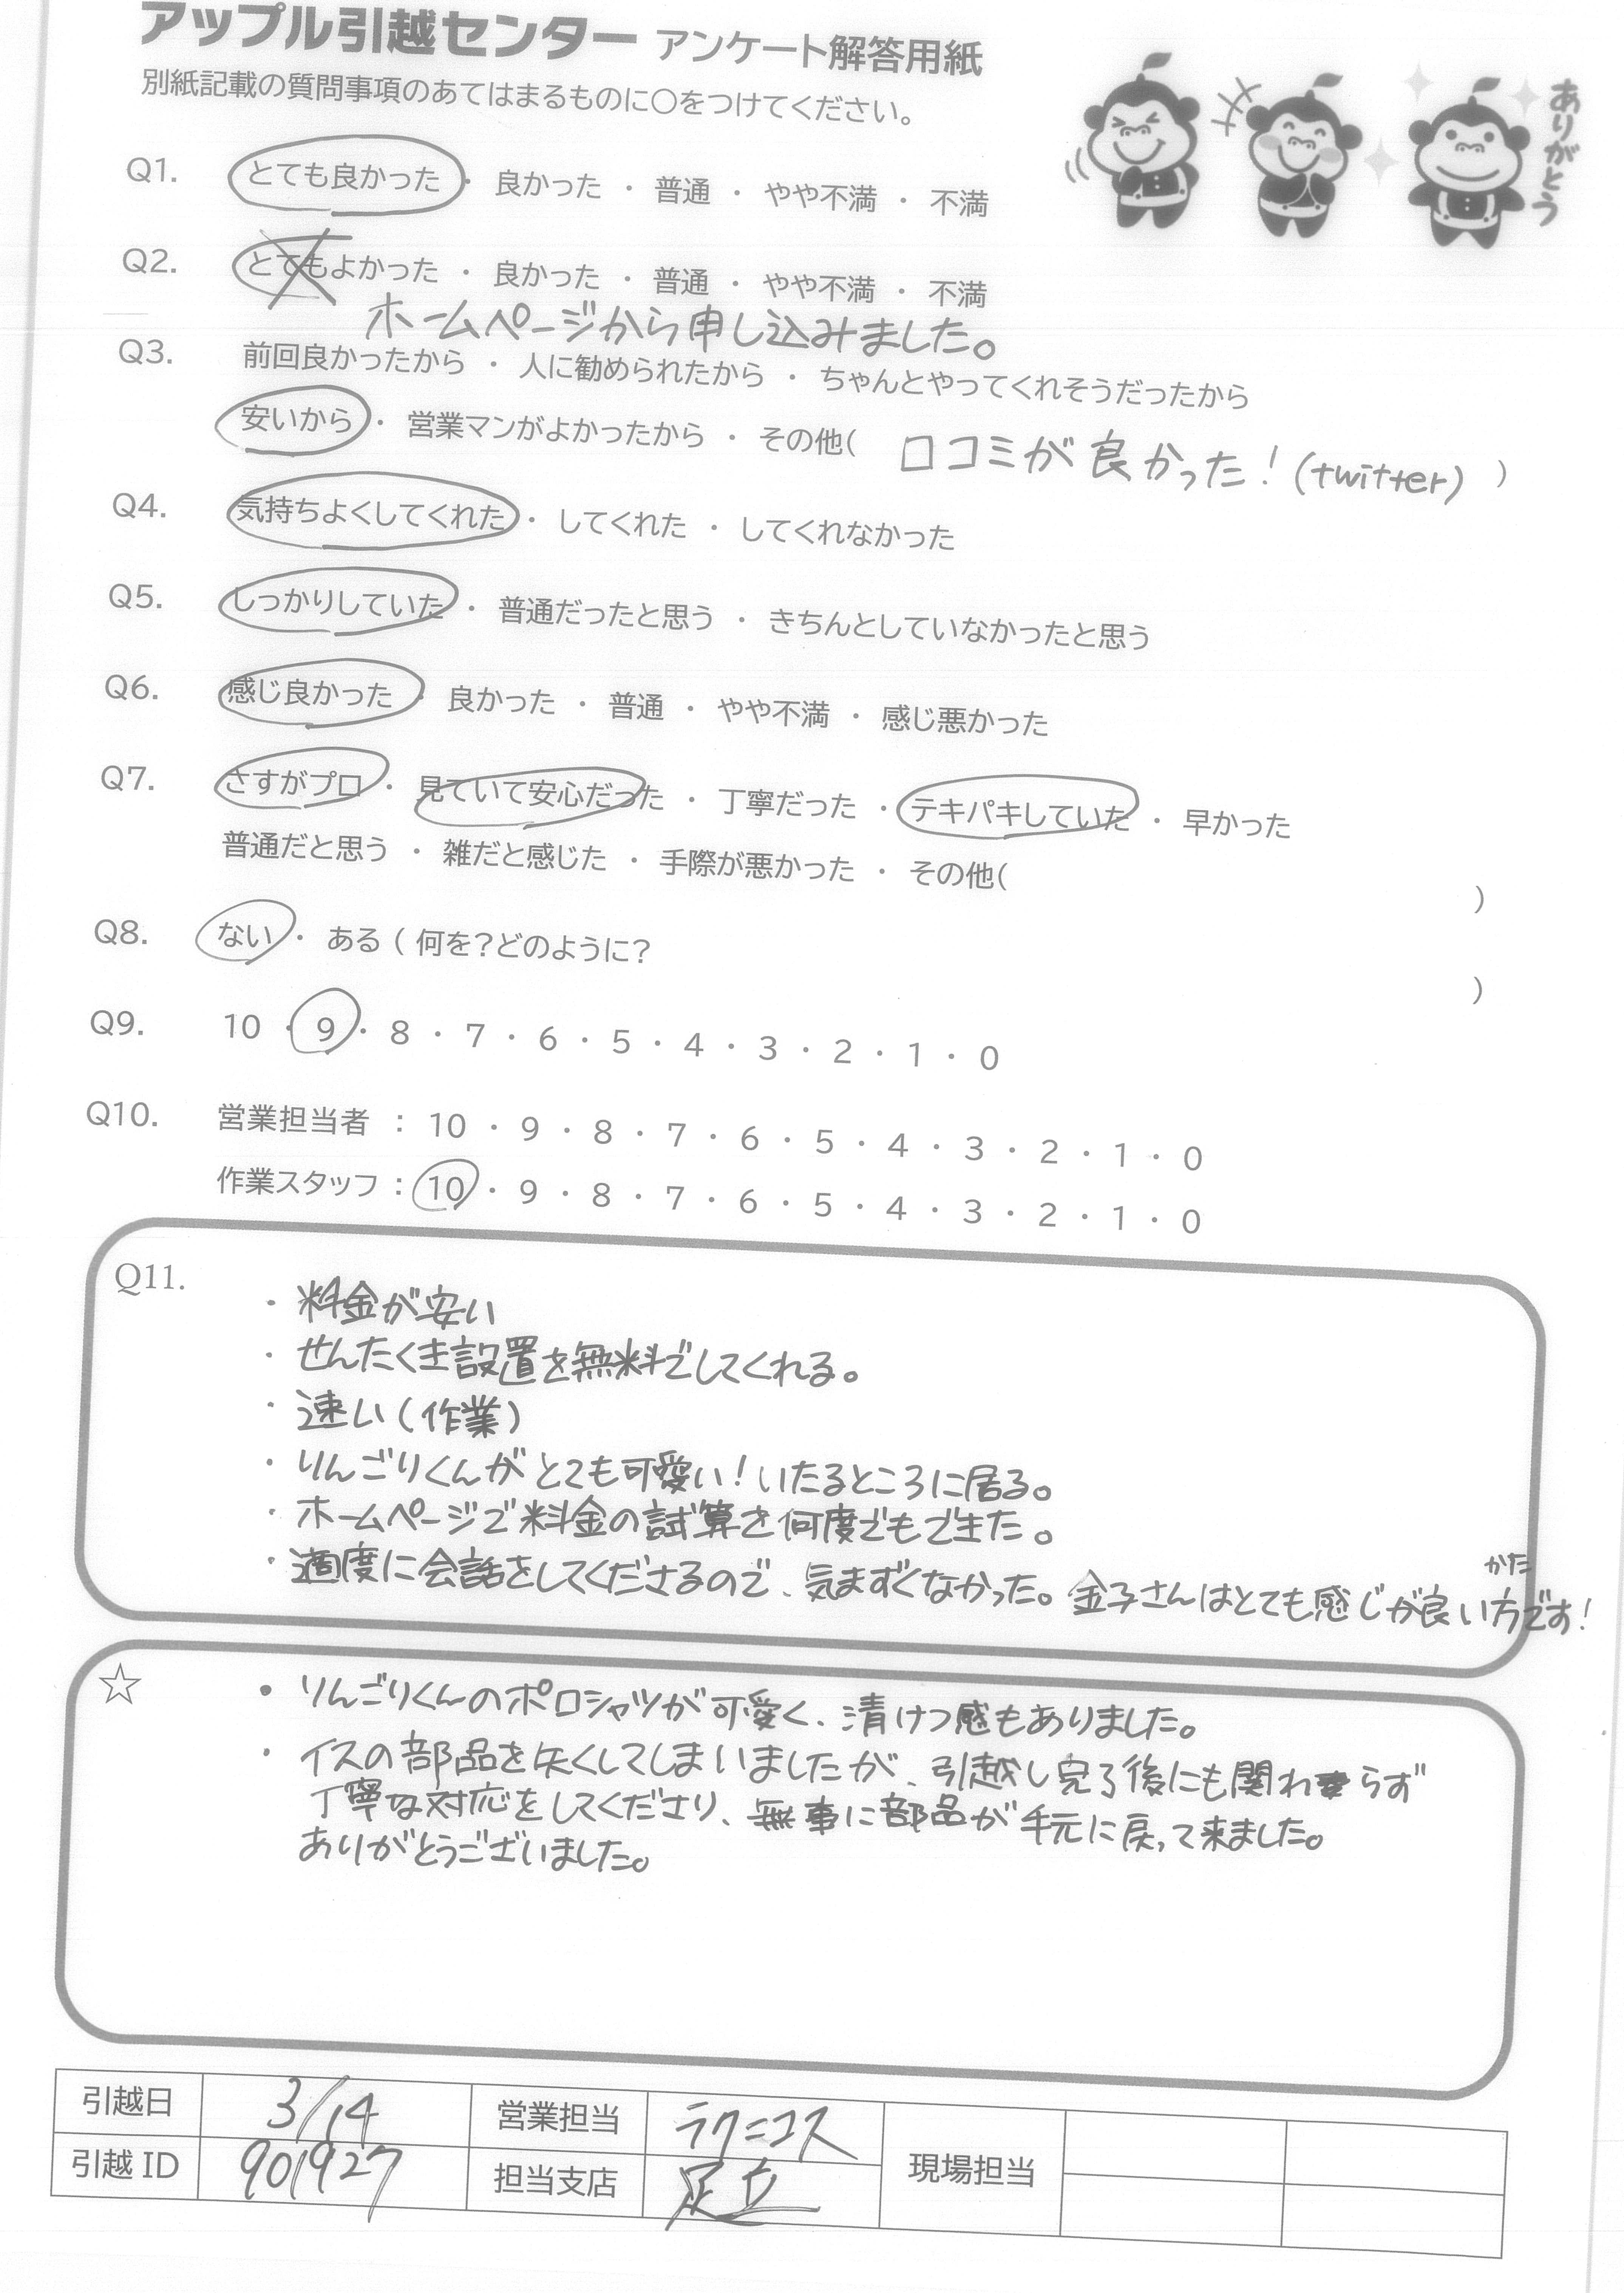 アップル引越センター アンケート解答用紙
別紙記載の質問事項のあてはまるものに○をつけてください。
ありがとう
Q1. とても良かった ・ 良かった ・ 普通 ・ やや不満 ・ 不満
Q2. とてもよかった ・ 良かった ・ 普通 ・ やや不満 ・ 不満
ホームページから申し込みました。
Q3. 前回良かったから ・ 人に勧められたから ・ ちゃんとやってくれそうだったから
安いから ・ 営業マンがよかったから ・ その他( 口コミが良かった！(twitter) )
Q4. 気持ちよくしてくれた ・ してくれた ・ してくれなかった
Q5. しっかりしていた ・ 普通だったと思う ・ きちんとしていなかったと思う
Q6. 感じ良かった ・ 良かった ・ 普通 ・ やや不満 ・ 感じ悪かった
Q7. さすがプロ ・ 見ていて安心だった ・ 丁寧だった ・ テキパキしていた ・ 早かった
普通だと思う ・ 雑だと感じた ・ 手際が悪かった ・ その他( )
Q8. ない ・ ある ( 何を?どのように? )
Q9. 10 ・ 9 ・ 8 ・ 7 ・ 6 ・ 5 ・ 4 ・ 3 ・ 2 ・ 1 ・ 0
Q10. 営業担当者 : 10 ・ 9 ・ 8 ・ 7 ・ 6 ・ 5 ・ 4 ・ 3 ・ 2 ・ 1 ・ 0
作業スタッフ : 10 ・ 9 ・ 8 ・ 7 ・ 6 ・ 5 ・ 4 ・ 3 ・ 2 ・ 1 ・ 0
Q11. ・料金が安い
・せんたくき設置を無料でしてくれる。
・速い(作業)
・りんごりくんがとても可愛い！いたるところに居る。
・ホームページで料金の試算を何度でもできた。
・適度に会話をしてくださるので、気まずくなかった。金子さんはとても感じが良い方です！
かた
☆ ・りんごりくんのポロシャツが可愛く、清けつ感もありました。
・イスの部品を失くしてしまいましたが、引越し完了後にも関わらず
丁寧な対応をしてくださり、無事に部品が手元に戻って来ました。
ありがとうございました。
引越日 3/14 営業担当 ラクニコス 現場担当
引越 ID 901927 担当支店 足立